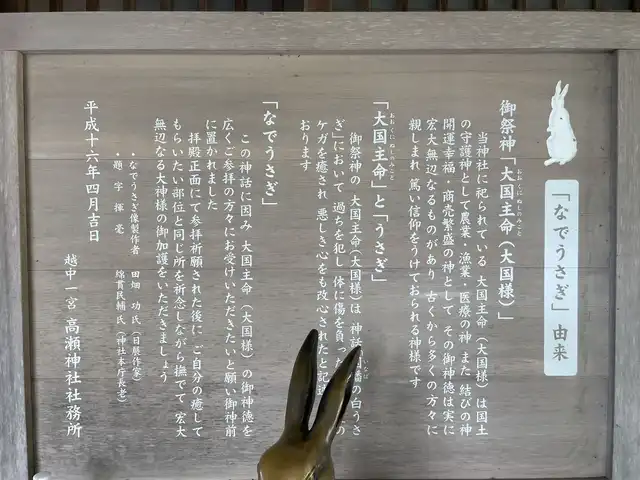 「なでうさぎ」由来
御祭神「大国主命(大国様)」
おおくにぬしのみこと
当神社に祀られている 大国主命(大国様)は国土
の守護神として農業・漁業・医療の神 また 結びの神
開運幸福・商売繁盛の神として その御神徳は実に
宏大無辺なるものがあり 古くから多くの方々に
親しまれ 篤い信仰をうけておられる神様です
「大国主命」と「うさぎ」
おおくにぬしのみこと
御祭神の 大国主命(大国様)は 神話
の白うさ
ぎ」において 過ちを犯し 体に傷を負っ
の
ケガを癒され 悪しき心をも改心されたと記
おります
「なでうさぎ」
この神話に因み 大国主命(大国様)の御神徳を
広くご参拝の方々にお受けいただきたいと願い御神前
に置かれました
拝殿正面にて参拝祈願された後に ご自分の癒して
もらいたい部位と同じ所を祈念しながら撫でて 宏大
無辺なる大神様の御加護をいただきましょう
・なでうさぎ像製作者 田畑 功氏(日展作家)
・題字揮毫 綿貫民輔氏(神社本庁長老)
平成十六年四月吉日
越中一宮 高瀬神社社務所